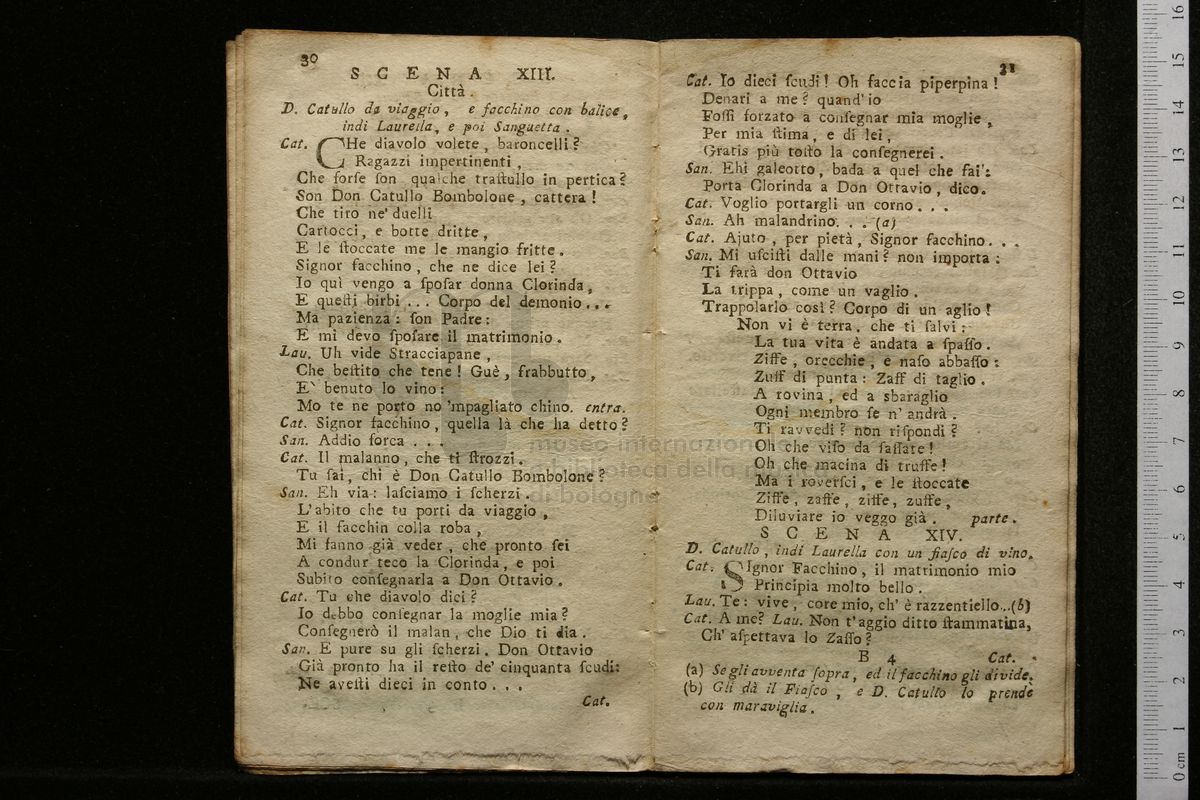 30
SCENA XIII.
Città.
D. Catullo da viaggio, e facchino con balice,
indi Laurella, e poi Sanguetta.
Cat. CHe diavolo volete, baroncelli?
Ragazzi impertinenti,
Che forſe ſon qualche traſtullo in pertica?
Son Don Catullo Bombolone, cattera!
Che tiro ne' duelli
Cartocci, e botte dritte,
E le ſtoccate me le mangio fritte.
Signor facchino, che ne dice lei?
Io quì vengo a ſpoſar donna Clorinda,
E queſti birbi... Corpo del demonio...
Ma pazienza: ſon Padre:
E mi devo ſpoſare il matrimonio.
Lau. Uh vide Stracciapane,
Che beſtito che tene! Guè, frabbutto,
E` benuto lo vino:
Mo te ne porto no 'mpagliato chino. entra.
Cat. Signor facchino, quella là che ha detto?
San. Addio forca...
Cat. Il malanno, che ti ſtrozzi.
Tu ſai, chi è Don Catullo Bombolone?
San. Eh via: laſciamo i ſcherzi.
L'abito che tu porti da viaggio,
E il facchin colla roba,
Mi fanno già veder, che pronto ſei
A condur teco la Clorinda, e poi
Subito conſegnarla a Don Ottavio.
Cat. Tu che diavolo dici?
Io debbo conſegnar la moglie mia?
Conſegnerò il malan, che Dio ti dia.
San. E pure su gli ſcherzi. Don Ottavio
Già pronto ha il reſto de' cinquanta ſcudi:
Ne aveſti dieci in conto...
Cat.
31
Cat. Io dieci ſcudi! Oh faccia piperpina!
Denari a me? quand'io
Foſſi forzato a conſegnar mia moglie,
Per mia ſtima, e di lei,
Gratis più toſto la conſegnerei.
San. Ehi galeotto, bada a quel che fai:
Porta Clorinda a Don Ottavio, dico.
Cat. Voglio portargli un corno...
San. Ah malandrino... (a)
Cat. Ajuto, per pietà, Signor facchino...
San. Mi uſciſti dalle mani? non importa:
Ti farà don Ottavio
La trippa, come un vaglio.
Trappolarlo così? Corpo di un aglio!
Non vi è terra, che ti ſalvi:
La tua vita è andata a ſpaſſo.
Ziffe, orecchie, e naſo abbaſſo:
Zuff di punta: Zaff di taglio.
A rovina, ed a sbaraglio
Ogni membro ſe n' andrà.
Ti ravvedi? non riſpondi?
Oh che viſo da ſaſſate!
Oh che macina di truffe!
Ma i roverſci, e le ſtoccate
Ziffe, zaffe, ziffe, zuffe,
Diluviare io veggo già. parte.
SCENA XIV.
D. Catullo, indi Laurella con un fiaſco di vino.
Cat. SIgnor Facchino, il matrimonio mio
Principia molto bello.
Lau. Te: vive, core mio, ch' è razzentiello...(b)
Cat. A me? Lau. Non t'aggio ditto ſtammatina,
Ch' aſpettava lo Zaſſo?
B 4 Cat.
(a) Se gli avventa ſopra, ed il facchino gli divide.
(b) Gli dà il Fiaſco, e D. Catullo lo prende
con maraviglia.
museo internazionale
e biblioteca della musica
di bologna
0 cm 1 2 3 4 5 6 7 8 9 10 11 12 13 14 15 16